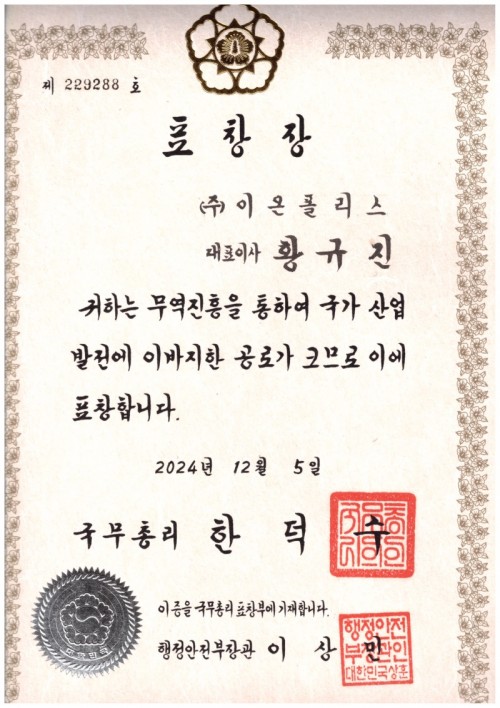 제 229288 호
표 창 장
(주)이 온 폴 리 스
대표이사 황 규 진
귀하는 무역진흥을 통하여 국가 산업
발전에 이바지한 공로가 크므로 이에
표창합니다.
2024년 12월 5일
국무총리 한 덕 수
이 증을 국무총리 표창부에 기재합니다.
행정안전부장관 이 상 민
행정안전
부장관인
대한민국상훈